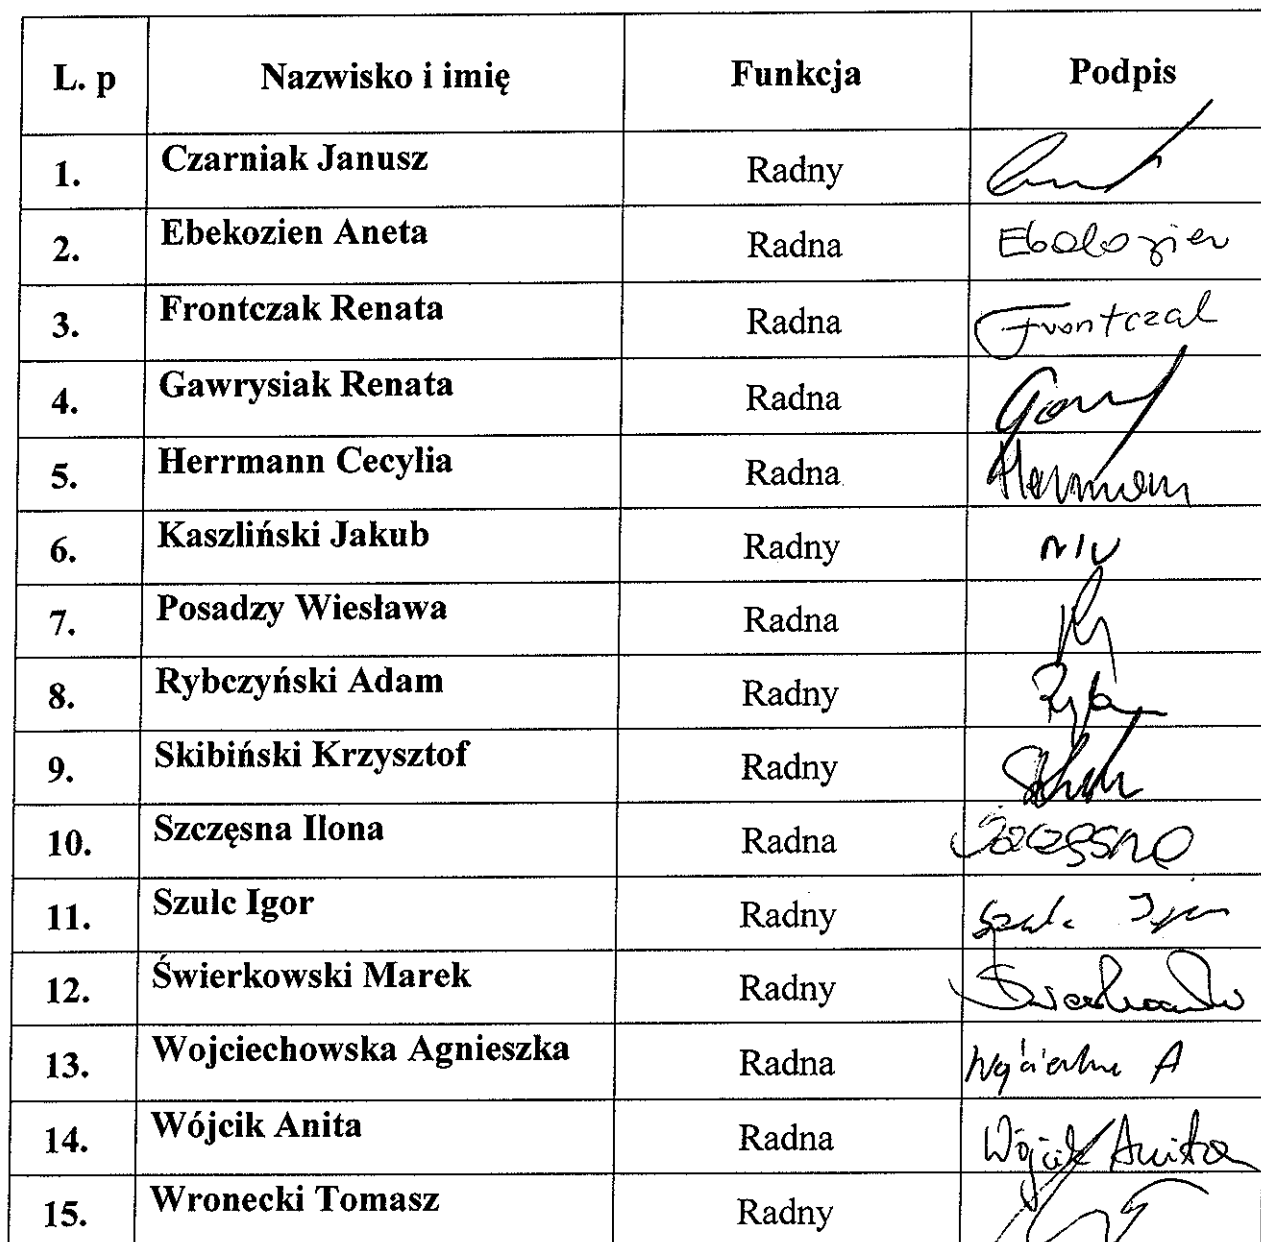 L. p Nazwisko i imię Funkcja Podpis
1. Czarniak Janusz Radny
2. Ebekozien Aneta Radna Ebekozien
3. Frontczak Renata Radna Frontczak
4. Gawrysiak Renata Radna
5. Herrmann Cecylia Radna Herrmann
6. Kaszliński Jakub Radny
7. Posadzy Wiesława Radna
8. Rybczyński Adam Radny
9. Skibiński Krzysztof Radny
10. Szczęsna Ilona Radna Szczęsna
11. Szulc Igor Radny Szulc Igor
12. Świerkowski Marek Radny
13. Wojciechowska Agnieszka Radna
14. Wójcik Anita Radna Wójcik Anita
15. Wronecki Tomasz Radny